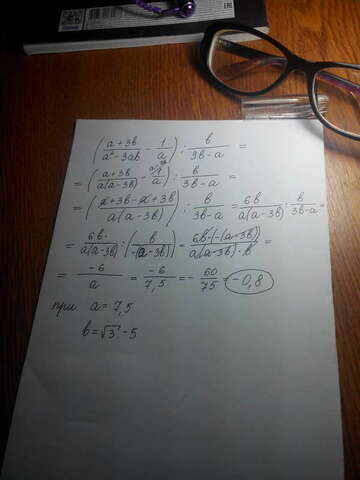 ((a+3b)/(a²-3ab) - 1/a) : b/(3b-a) =
= ((a+3b)/(a(a-3b)) - 1/a) : b/(3b-a) =
= ((a+3b-a+3b)/(a(a-3b))) : b/(3b-a) = 6b/(a(a-3b)) : b/(3b-a) =
= 6b/(a(a-3b)) : (b/(-(a-3b))) = (6b·(-(a-3b)))/(a(a-3b)·b) =
= -6/a = -6/7,5 = -60/75 = -0,8
при a=7,5
b=√3-5